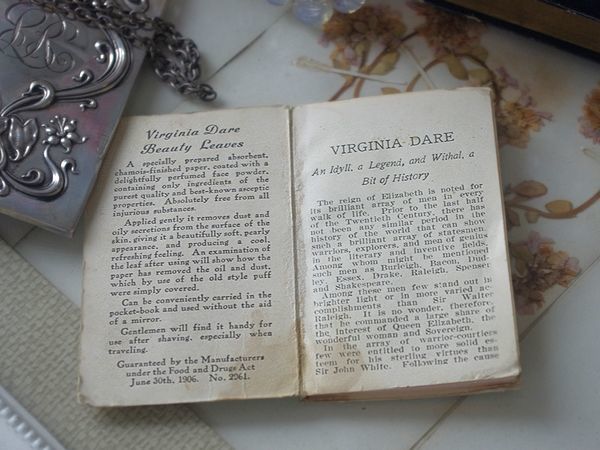 Virginia Dare
Beauty Leaves
A specially prepared absorbent,
chamois-finished paper, coated with a
delightfully perfumed face powder,
containing only ingredients of the
purest quality and best-known asceptic
properties. Absolutely free from all
injurious substances.
Applied gently it removes dust and
oily secretions from the surface of the
skin, giving it a beautifully soft, pearly
appearance, and producing a cool,
refreshing feeling. An examination of
the leaf after using will show how the
paper has removed the oil and dust,
which by use of the old style puff
were simply covered.
Can be conveniently carried in the
pocket-book and used without the aid
of a mirror.
Gentlemen will find it handy for
use after shaving, especially when
traveling.
Guaranteed by the Manufacturers
under the Food and Drugs Act
June 30th, 1906. No. 2961.
VIRGINIA DARE
An Idyll, a Legend, and Withal, a
Bit of History
The reign of Elizabeth is noted for
its brilliant array of men in every
walk of life. Prior to the last half
of the Twentieth Century, there has
not been any similar period in the
history of the world that can show
such a brilliant array of statesmen,
warriors, explorers, and men of genius
in the literary and inventive fields.
Among whom might be mentioned
such men as Burleigh, Bacon, Dud-
ley, Essex, Drake, Raleigh, Spenser
and Shakespeare.
Among these men few stand out in
brighter light or in more varied ac-
complishments than Sir Walter
Raleigh. It is no wonder, therefore,
that he commanded a large share of
the interest of Queen Elizabeth, the
wonderful woman and Sovereign.
In the array of warrior-courtiers
few were entitled to more solid es-
teem for his sterling virtues than
Sir John White. Following the cause